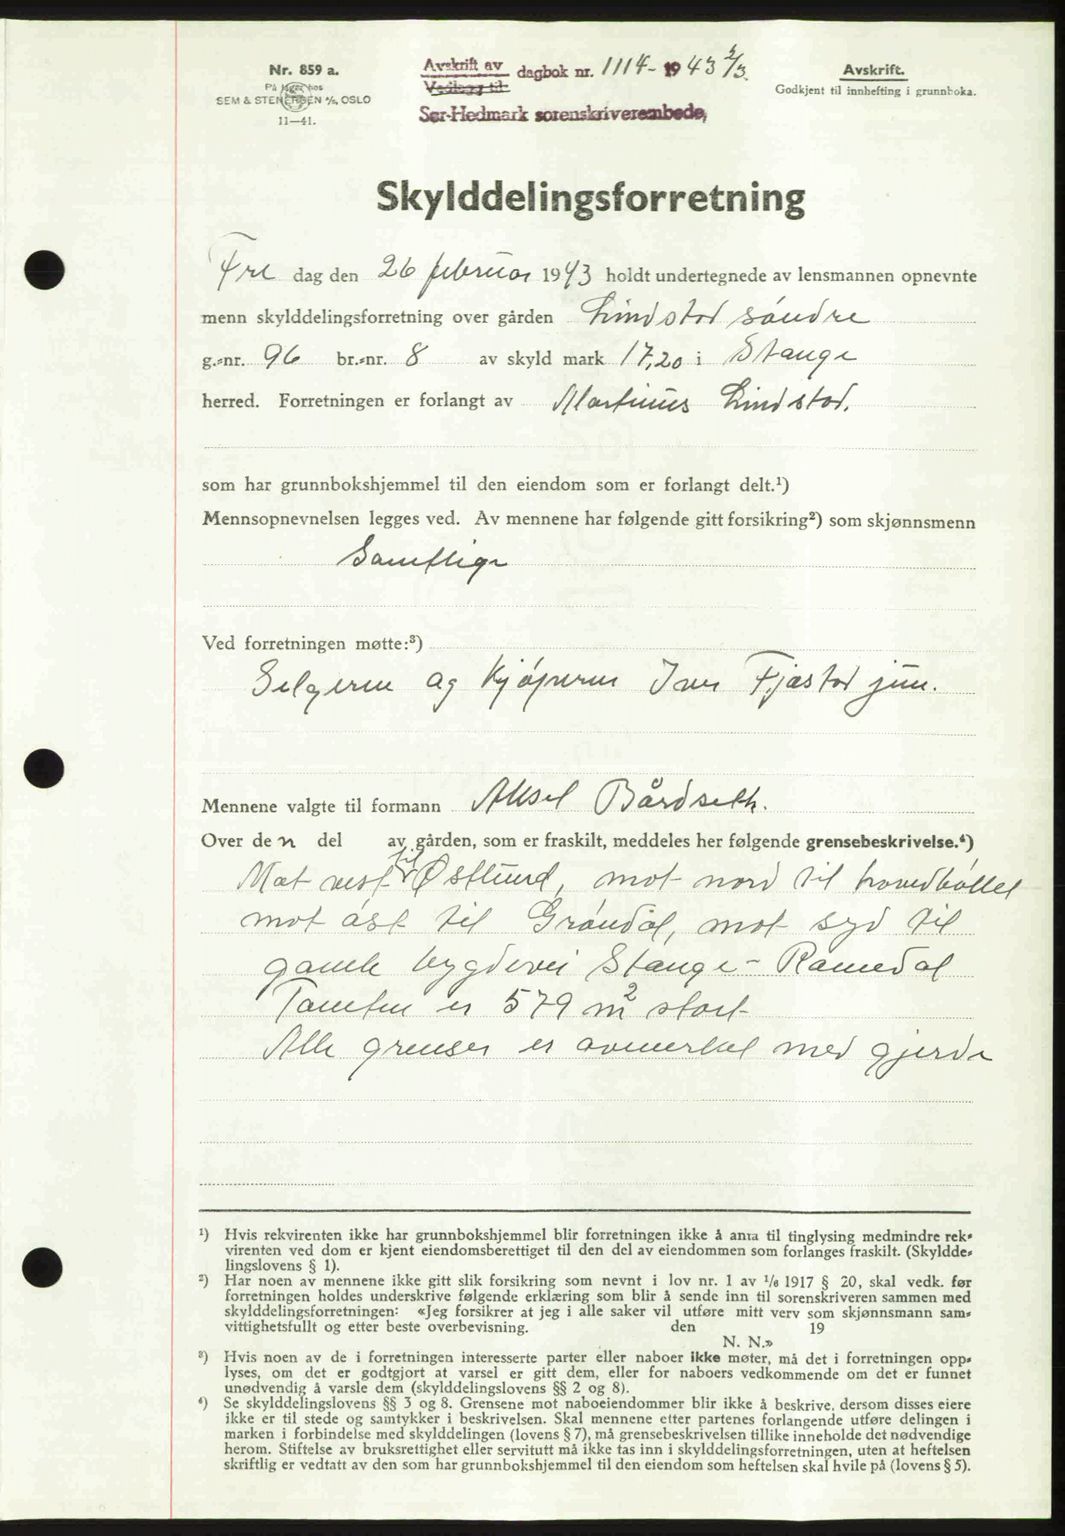 Nr. 859 a.
På lager hos
SEM & STENERSEN A/S, OSLO
11—41.
Avskrift av
Vedlegg til
dagbok nr. 1114- 1943 2/3.
Sør-Hedmark sorenskriverembede,
Avskrift.
Godkjent til innhefting i grunnboka.
Skylddelingsforretning
Fre dag den 26 februar 1943 holdt undertegnede av lensmannen opnevnte
menn skylddelingsforretning over gården Lindstad søndre
g.-nr. 96 br.-nr. 8 av skyld mark 17,20 i Stange
herred. Forretningen er forlangt av Martinus Lindstad.
som har grunnbokshjemmel til den eiendom som er forlangt delt.¹)
Mennsopnevnelsen legges ved. Av mennene har følgende gitt forsikring²) som skjønnsmenn
Samtlige
Ved forretningen møtte:³)
Selgeren og kjøperen Iver Fjæstad jun.
Mennene valgte til formann Aksel Bårdseth.
Over den del av gården, som er fraskilt, meddeles her følgende grensebeskrivelse.⁴)
Mot vest til Østlund, mot nord til hovedbøllet
mot øst til Grøndal, mot syd til
gamle bygdevei Stange - Romedal
Tomten er 579 m² stort
Alle grenser er avmerket med gjerde
¹) Hvis rekvirenten ikke har grunnbokshjemmel blir forretningen ikke å anta til tinglysing medmindre rek-
virenten ved dom er kjent eiendomsberettiget til den del av eiendommen som forlanges fraskilt. (Skyldde-
lingslovens § 1).
²) Har noen av mennene ikke gitt slik forsikring som nevnt i lov nr. 1 av 1/6 1917 § 20, skal vedk. før
forretningen holdes underskrive følgende erklæring som blir å sende inn til sorenskriveren sammen med
skylddelingsforretningen: «Jeg forsikrer at jeg i alle saker vil utføre mitt verv som skjønnsmann sam-
vittighetsfullt og etter beste overbevisning. den 19
N. N.»
³) Hvis noen av de i forretningen interesserte parter eller naboer ikke møter, må det i forretningen opp-
lyses, om det er godtgjort at varsel er gitt dem, eller for naboers vedkommende om det er funnet
unødvendig å varsle dem (skylddelingslovens §§ 2 og 8).
⁴) Se skylddelingslovens §§ 3 og 8. Grensene mot naboeiendommer blir ikke å beskrive, dersom disses eiere
ikke er til stede og samtykker i beskrivelsen. Skal mennene etter partenes forlangende utføre delingen i
marken i forbindelse med skylddelingen (lovens § 7), må grensebeskrivelsen tillike inneholde det nødvendige
herom. Stiftelse av bruksrettighet eller servitutt må ikke tas inn i skylddelingsforretningen, uten at heftelsen
skriftlig er vedtatt av den som har grunnbokshjemmel til den eiendom som heftelsen skal hvile på (lovens § 5).